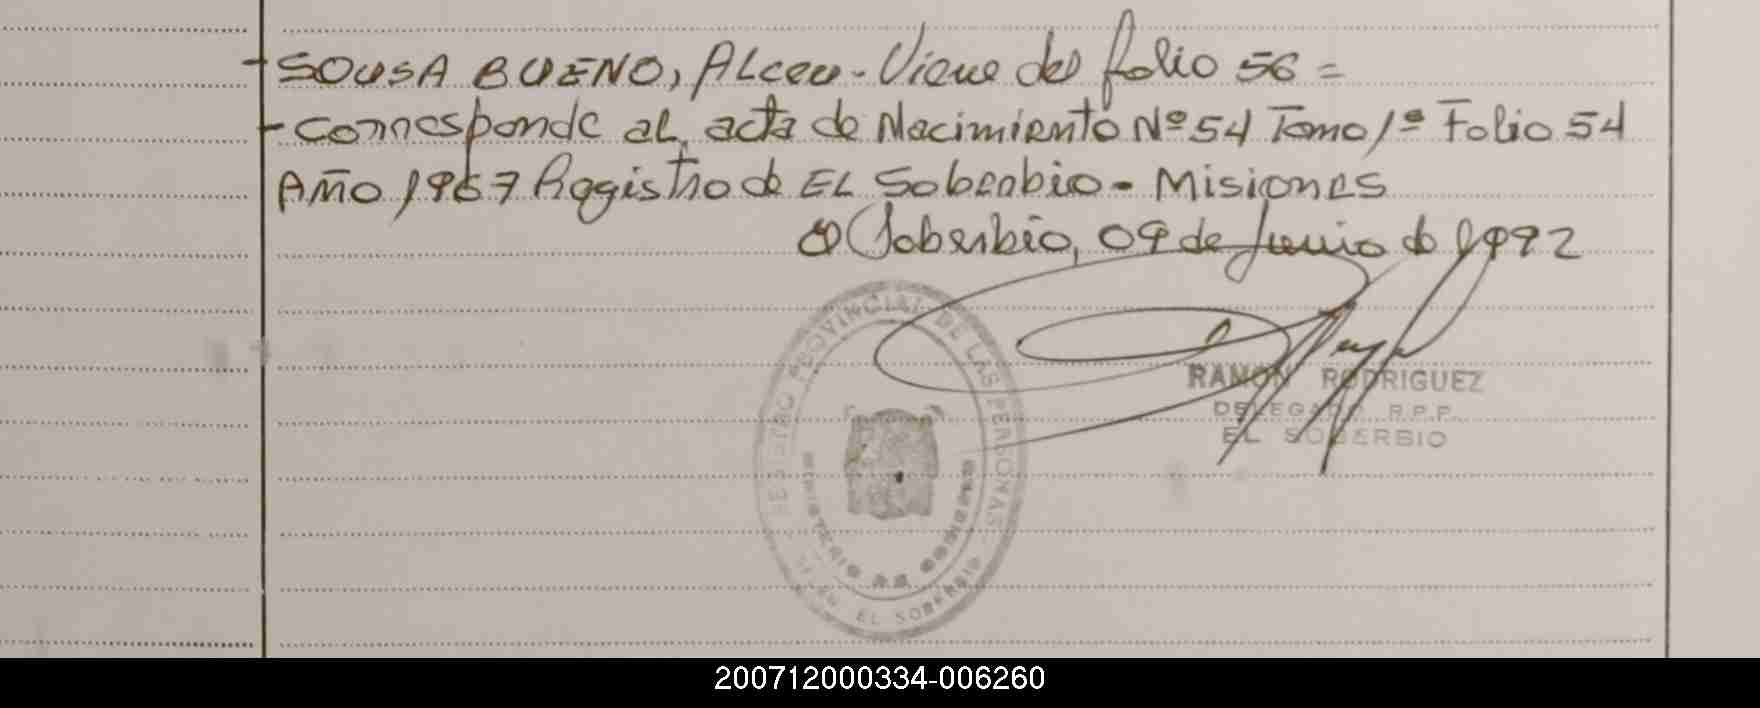 - SOUSA BUENO, ALceu - Viene del folio 56 =
- Corresponde al acta de Nacimiento Nº 54 Tomo 1º Folio 54
Año 1967 Registro de EL Soberbio - Misiones
El Soberbio, 09 de Junio de 1992
REGISTRO PROVINCIAL DE LAS PERSONAS
MINISTERIO DE GOBIERNO
EL SOBERBIO
RAMON RODRIGUEZ
DELEGADO R.P.P.
EL SOBERBIO
200712000334-006260